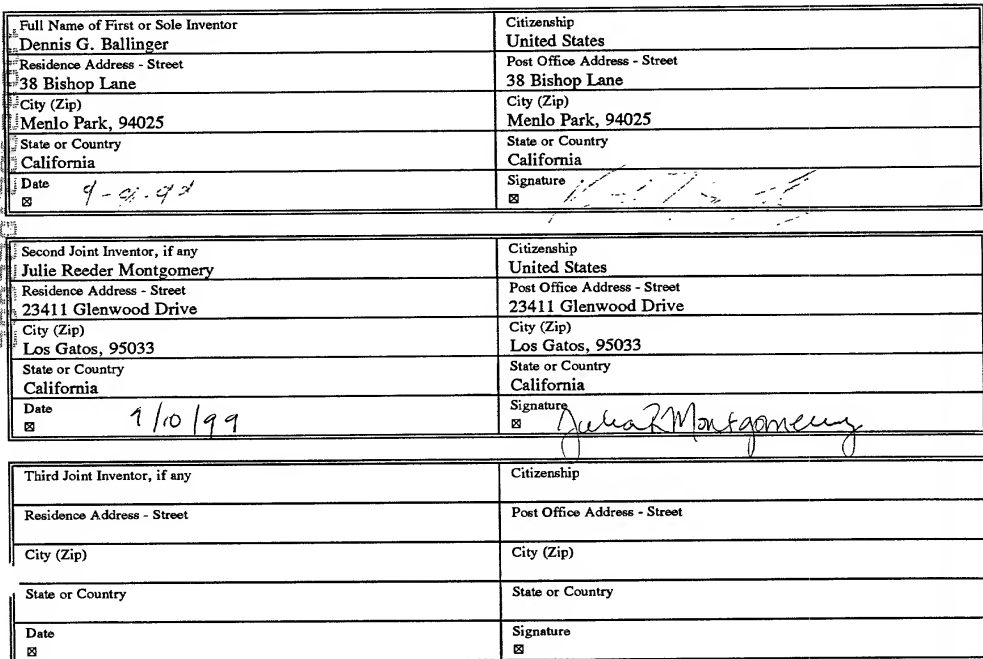 Full Name of First or Sole Inventor
Dennis G. Ballinger
Citizenship
United States
Residence Address - Street
38 Bishop Lane
Post Office Address - Street
38 Bishop Lane
City (Zip)
Menlo Park, 94025
City (Zip)
Menlo Park, 94025
State or Country
California
State or Country
California
Date
Signature
Second Joint Inventor, if any
Julie Reeder Montgomery
Citizenship
United States
Residence Address - Street
23411 Glenwood Drive
Post Office Address - Street
23411 Glenwood Drive
City (Zip)
Los Gatos, 95033
City (Zip)
Los Gatos, 95033
State or Country
California
State or Country
California
Date
9/10/99
Signature
Julia R Montgomery
Third Joint Inventor, if any
Citizenship
Residence Address - Street
Post Office Address - Street
City (Zip)
City (Zip)
State or Country
State or Country
Date
Signature